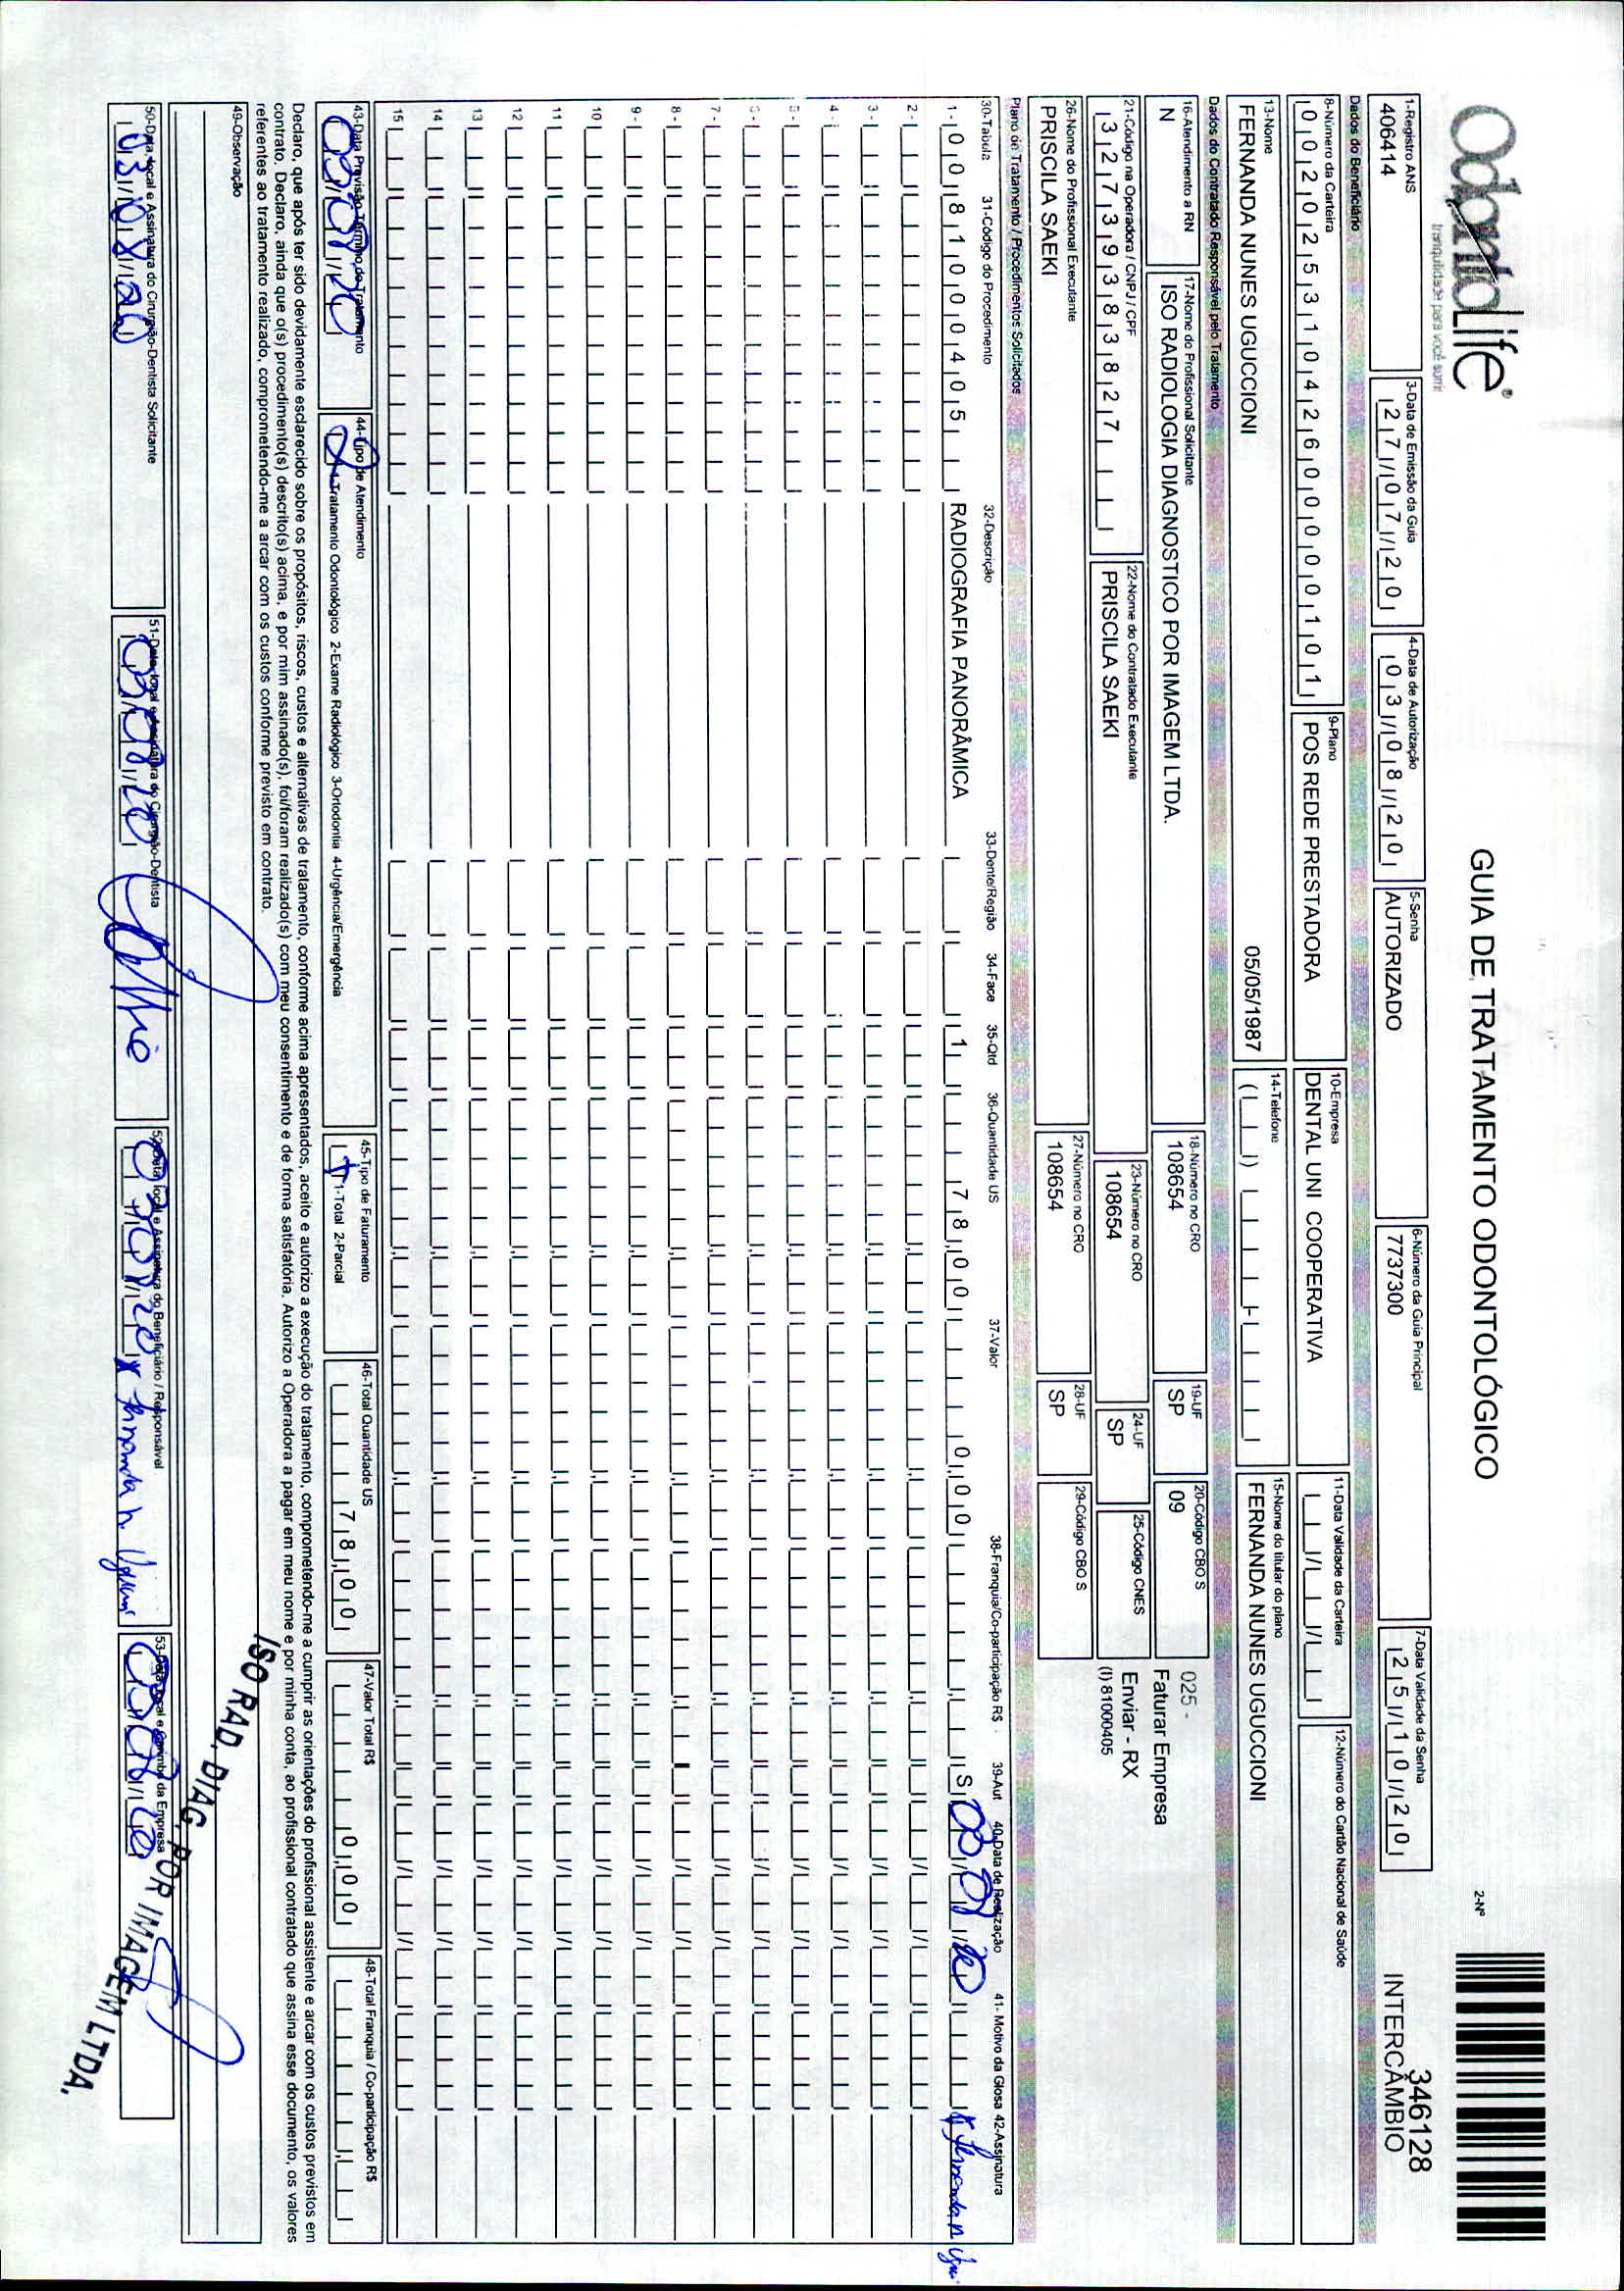 OdontoLife®
tranquilidade para você sorrir
GUIA DE TRATAMENTO ODONTOLÓGICO
2-Nº
346128
INTERCÂMBIO
1-Registro ANS
406414
3-Data de Emissão da Guia
27/07/20
4-Data de Autorização
03/08/20
5-Senha
AUTORIZADO
6-Número da Guia Principal
7737300
7-Data Validade da Senha
25/10/20
Dados do Beneficiário
8-Número da Carteira
00202531042600000101
9-Plano
POS REDE PRESTADORA
10-Empresa
DENTAL UNI COOPERATIVA
11-Data Validade da Carteira
12-Número do Cartão Nacional de Saúde
13-Nome
FERNANDA NUNES UGUCCIONI 05/05/1987
14-Telefone
15-Nome do titular do plano
FERNANDA NUNES UGUCCIONI
Dados do Contratado Responsável pelo Tratamento
16-Atendimento a RN
N
17-Nome do Profissional Solicitante
ISO RADIOLOGIA DIAGNOSTICO POR IMAGEM LTDA.
18-Número no CRO
108654
19-UF
SP
20-Código CBO S
09
025 -
Faturar Empresa
Enviar - RX
(I) 81000405
21-Código na Operadora / CNPJ / CPF
32739383827
22-Nome do Contratado Executante
PRISCILA SAEKI
23-Número no CRO
108654
24-UF
SP
25-Código CNES
26-Nome do Profissional Executante
PRISCILA SAEKI
27-Número no CRO
108654
28-UF
SP
29-Código CBO S
Plano de Tratamento / Procedimentos Solicitados
30-Tabela 31-Código do Procedimento 32-Descrição 33-Dente/Região 34-Face 35-Qtd 36-Quantidade US 37-Valor 38-Franquia/Co-participação R$ 39-Aut 40-Data de Realização 41- Motivo da Glosa 42-Assinatura
1- 00 81000405 RADIOGRAFIA PANORÂMICA 1 78,00 0,00 S 03/08/20
2-
3-
4-
5-
6-
7-
8-
9-
10
11
12
13
14
15
43-Data Previsão Término do Tratamento
03/08/20
44-Tipo de Atendimento
2 1-Tratamento Odontológico 2-Exame Radiológico 3-Ortodontia 4-Urgência/Emergência
45-Tipo de Faturamento
1 1-Total 2-Parcial
46-Total Quantidade US
78,00
47-Valor Total R$
0,00
48-Total Franquia / Co-participação R$
Declaro, que após ter sido devidamente esclarecido sobre os propósitos, riscos, custos e alternativas de tratamento, conforme acima apresentados, aceito e autorizo a execução do tratamento, comprometendo-me a cumprir as orientações do profissional assistente e arcar com os custos previstos em
contrato. Declaro, ainda que o(s) procedimento(s) descrito(s) acima, e por mim assinado(s), foi/foram realizado(s) com meu consentimento e de forma satisfatória. Autorizo a Operadora a pagar em meu nome e por minha conta, ao profissional contratado que assina esse documento, os valores
referentes ao tratamento realizado, comprometendo-me a arcar com os custos conforme previsto em contrato.
49-Observação
50-Data, local e Assinatura do Cirurgião-Dentista Solicitante
03/08/20
51-Data, local e Assinatura do Cirurgião-Dentista
03/08/20
52-Data, local e Assinatura do Beneficiário / Responsável
03/08/20 x Fernanda N.
53-Data, local e Carimbo da Empresa
03/08/20
ISO RAD. DIAG. POR IMAGEM LTDA.